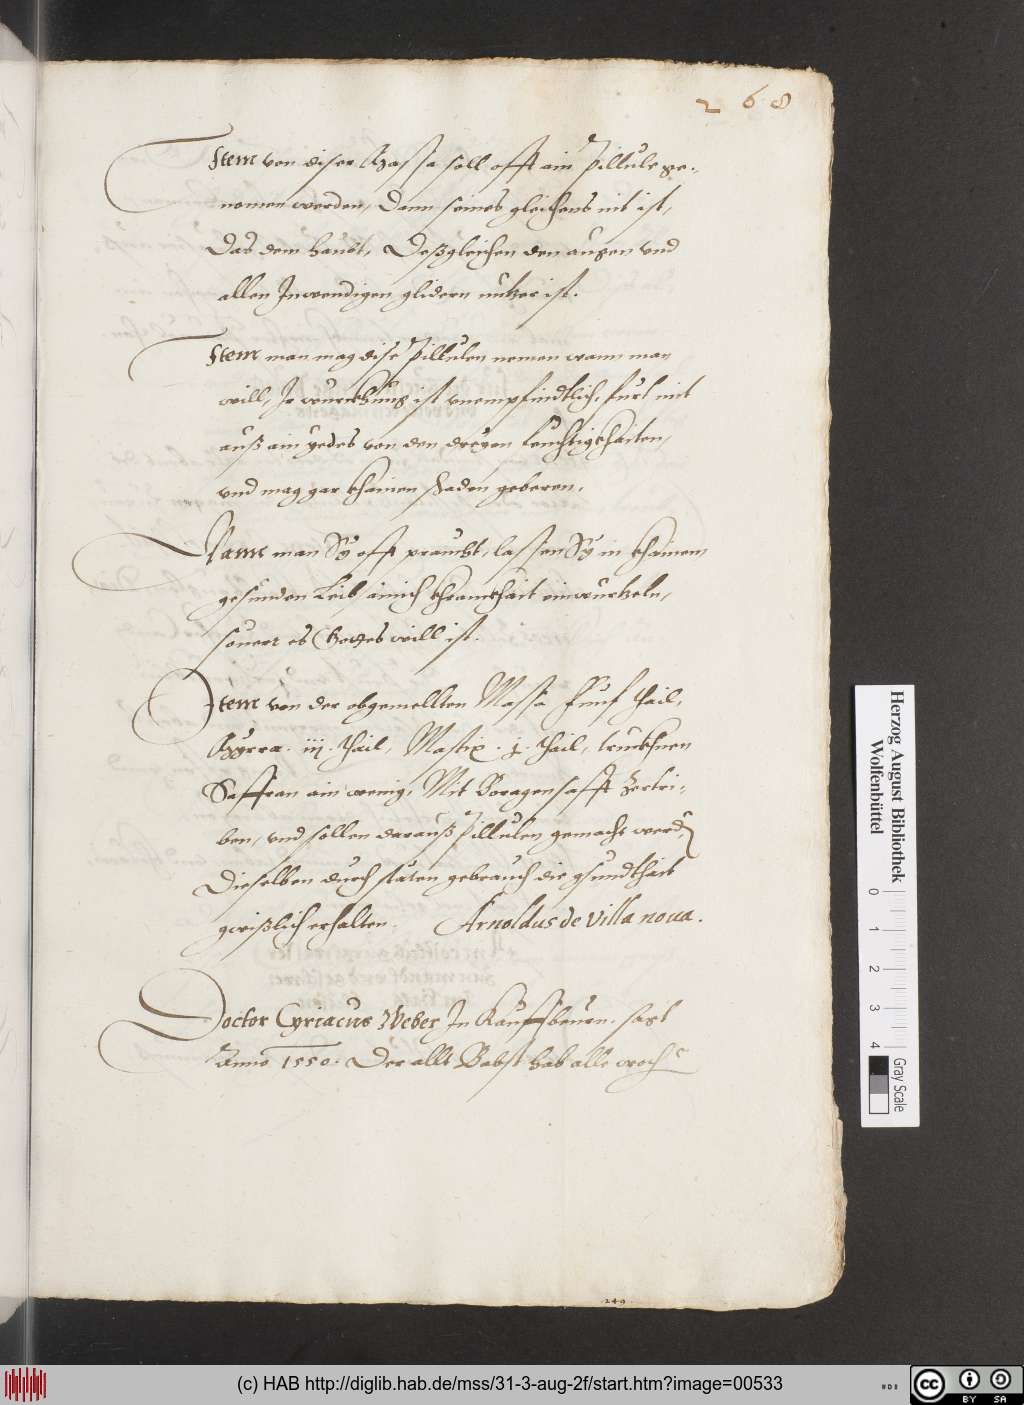 268
Item von diser Massa soll offt ain Pillule ge-
nomen werden, Dann seines gleichens nit ist,
Das dem haubt, Deßgleichen den augen vnd
allen Inwendigen glidern nutzer ist.
Item man mag dise Pillulen nemen wann man
will, Ir wurckhung ist vnempfindtlich, fürt mit
auß ain yedes von den dreyen feuchtigkhaiten,
vnd mag gar khainen schaden geberen.
Wann man Sy offt praucht, lassen Sy in khainem
gesunden Leib ainich khranckhait einwurtzeln,
souerr es Gottes will ist.
Item von der obgemellten Massa Funf thail,
Myrra. iij. thail, Mastix. j. thail, truckhnen
Saffran ain wenig, Mit Boragensafft zertri-
ben, vnd sollen darauß Pillulen gemacht werdn
Dieselben durch stäten gebrauch die gsundthait
gwißlich erhalten. Arnoldus de Villa noua.
Doctor Cyriacus Weber In Kauffbeuren. sagt
Anno 1550. Der allt Babst hab alle woch
249
Herzog August Bibliothek
Wolfenbüttel
0 1 2 3 4
Gray Scale
(c) HAB http://diglib.hab.de/mss/31-3-aug-2f/start.htm?image=00533
cc BY SA